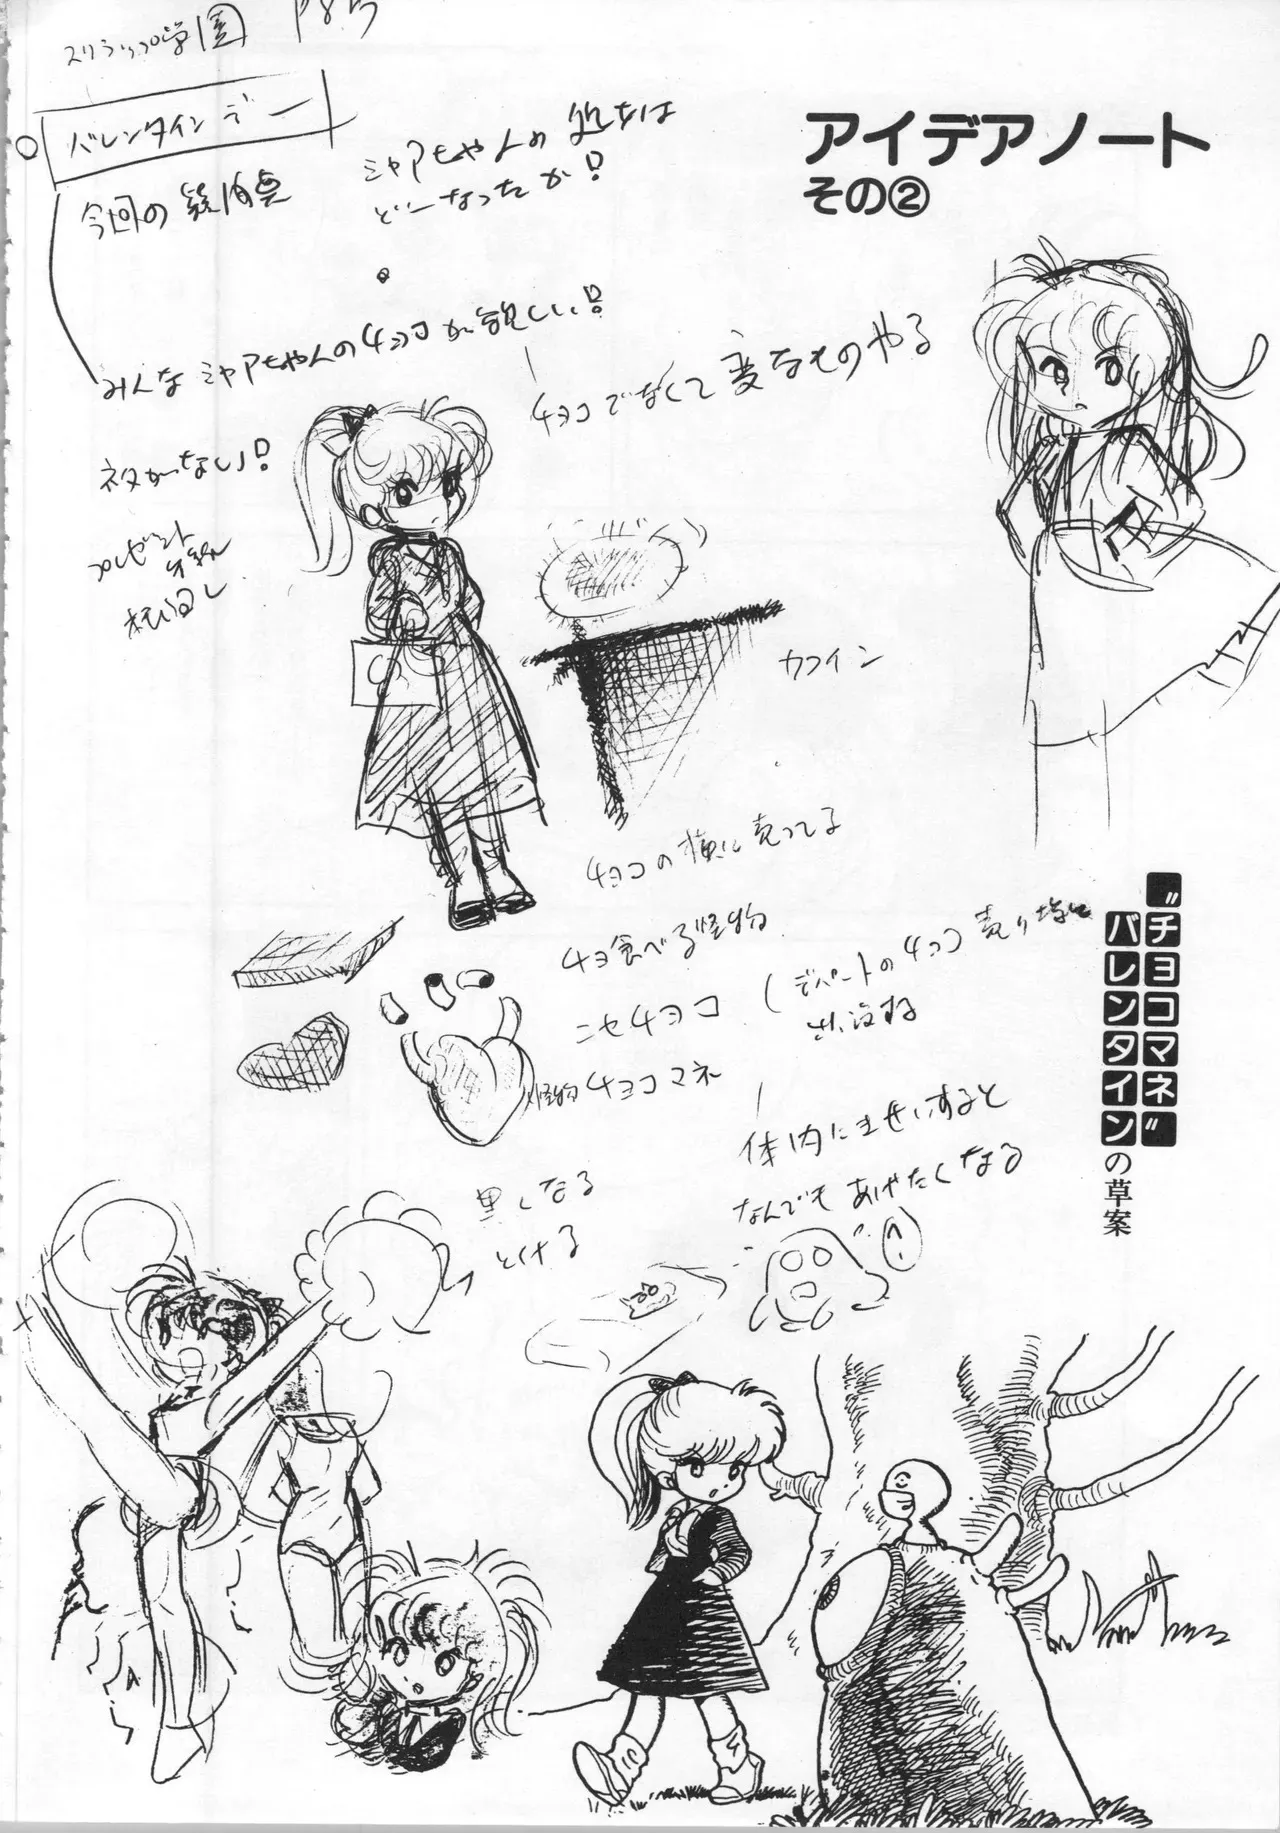 スクラップ学園 P85
アイデアノート
その②
バレンタインデー
今回の疑問点
ミャアちゃんの処女は
どーなったか!
みんなミャアちゃんのチョコが欲しい!
チョコでなくて変なものやる
ネタがない!
プレゼント
カフイン
チョコの横に売ってる
チョ食べる怪物
ニセチョコ
(デパートのチョコ売り場に
出没する
怪物チョコマネ
体内にませいすると
なんでもあげたくなる
黒くなる
とける
"チョコマネ"
バレンタインの草案